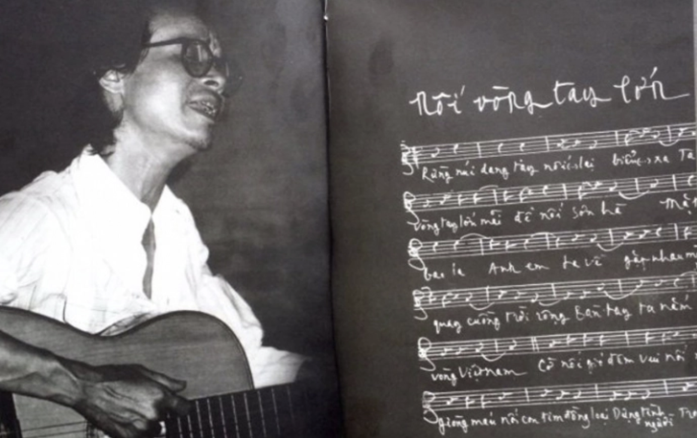 Nối vòng tay lớn
Rừng núi dang tay nối lại biển xa Ta
vòng tay lớn mãi để nối sơn hà Mặt
bao la Anh em ta về gặp nhau
quay cuồng trời rộng Bàn tay ta nắm
vòng Việt Nam Cờ nối gió đêm vui nối
giòng máu nối con tim đồng loại Dựng tình người